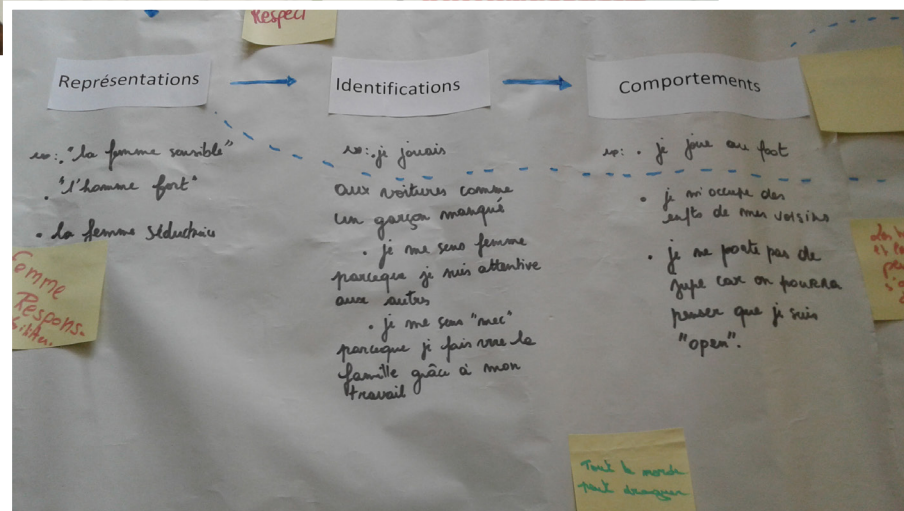 Respect
Représentations
Identifications
Comportements
ex: . "la femme sensible"
. "l'homme fort"
. la femme séductrice
ex: . je jouais
aux voitures comme
un garçon manqué
. je me sens femme
parceque je suis attentive
aux autres
. je me sens "mec"
parceque je fais vivre la
famille grâce à mon
travail
ex: . je joue au foot
. je m'occupe des
enfts de mes voisins
. je ne porte pas de
jupe car on pourra
penser que je suis
"open".
Femme
Respons-
Tout le monde
peut draguer